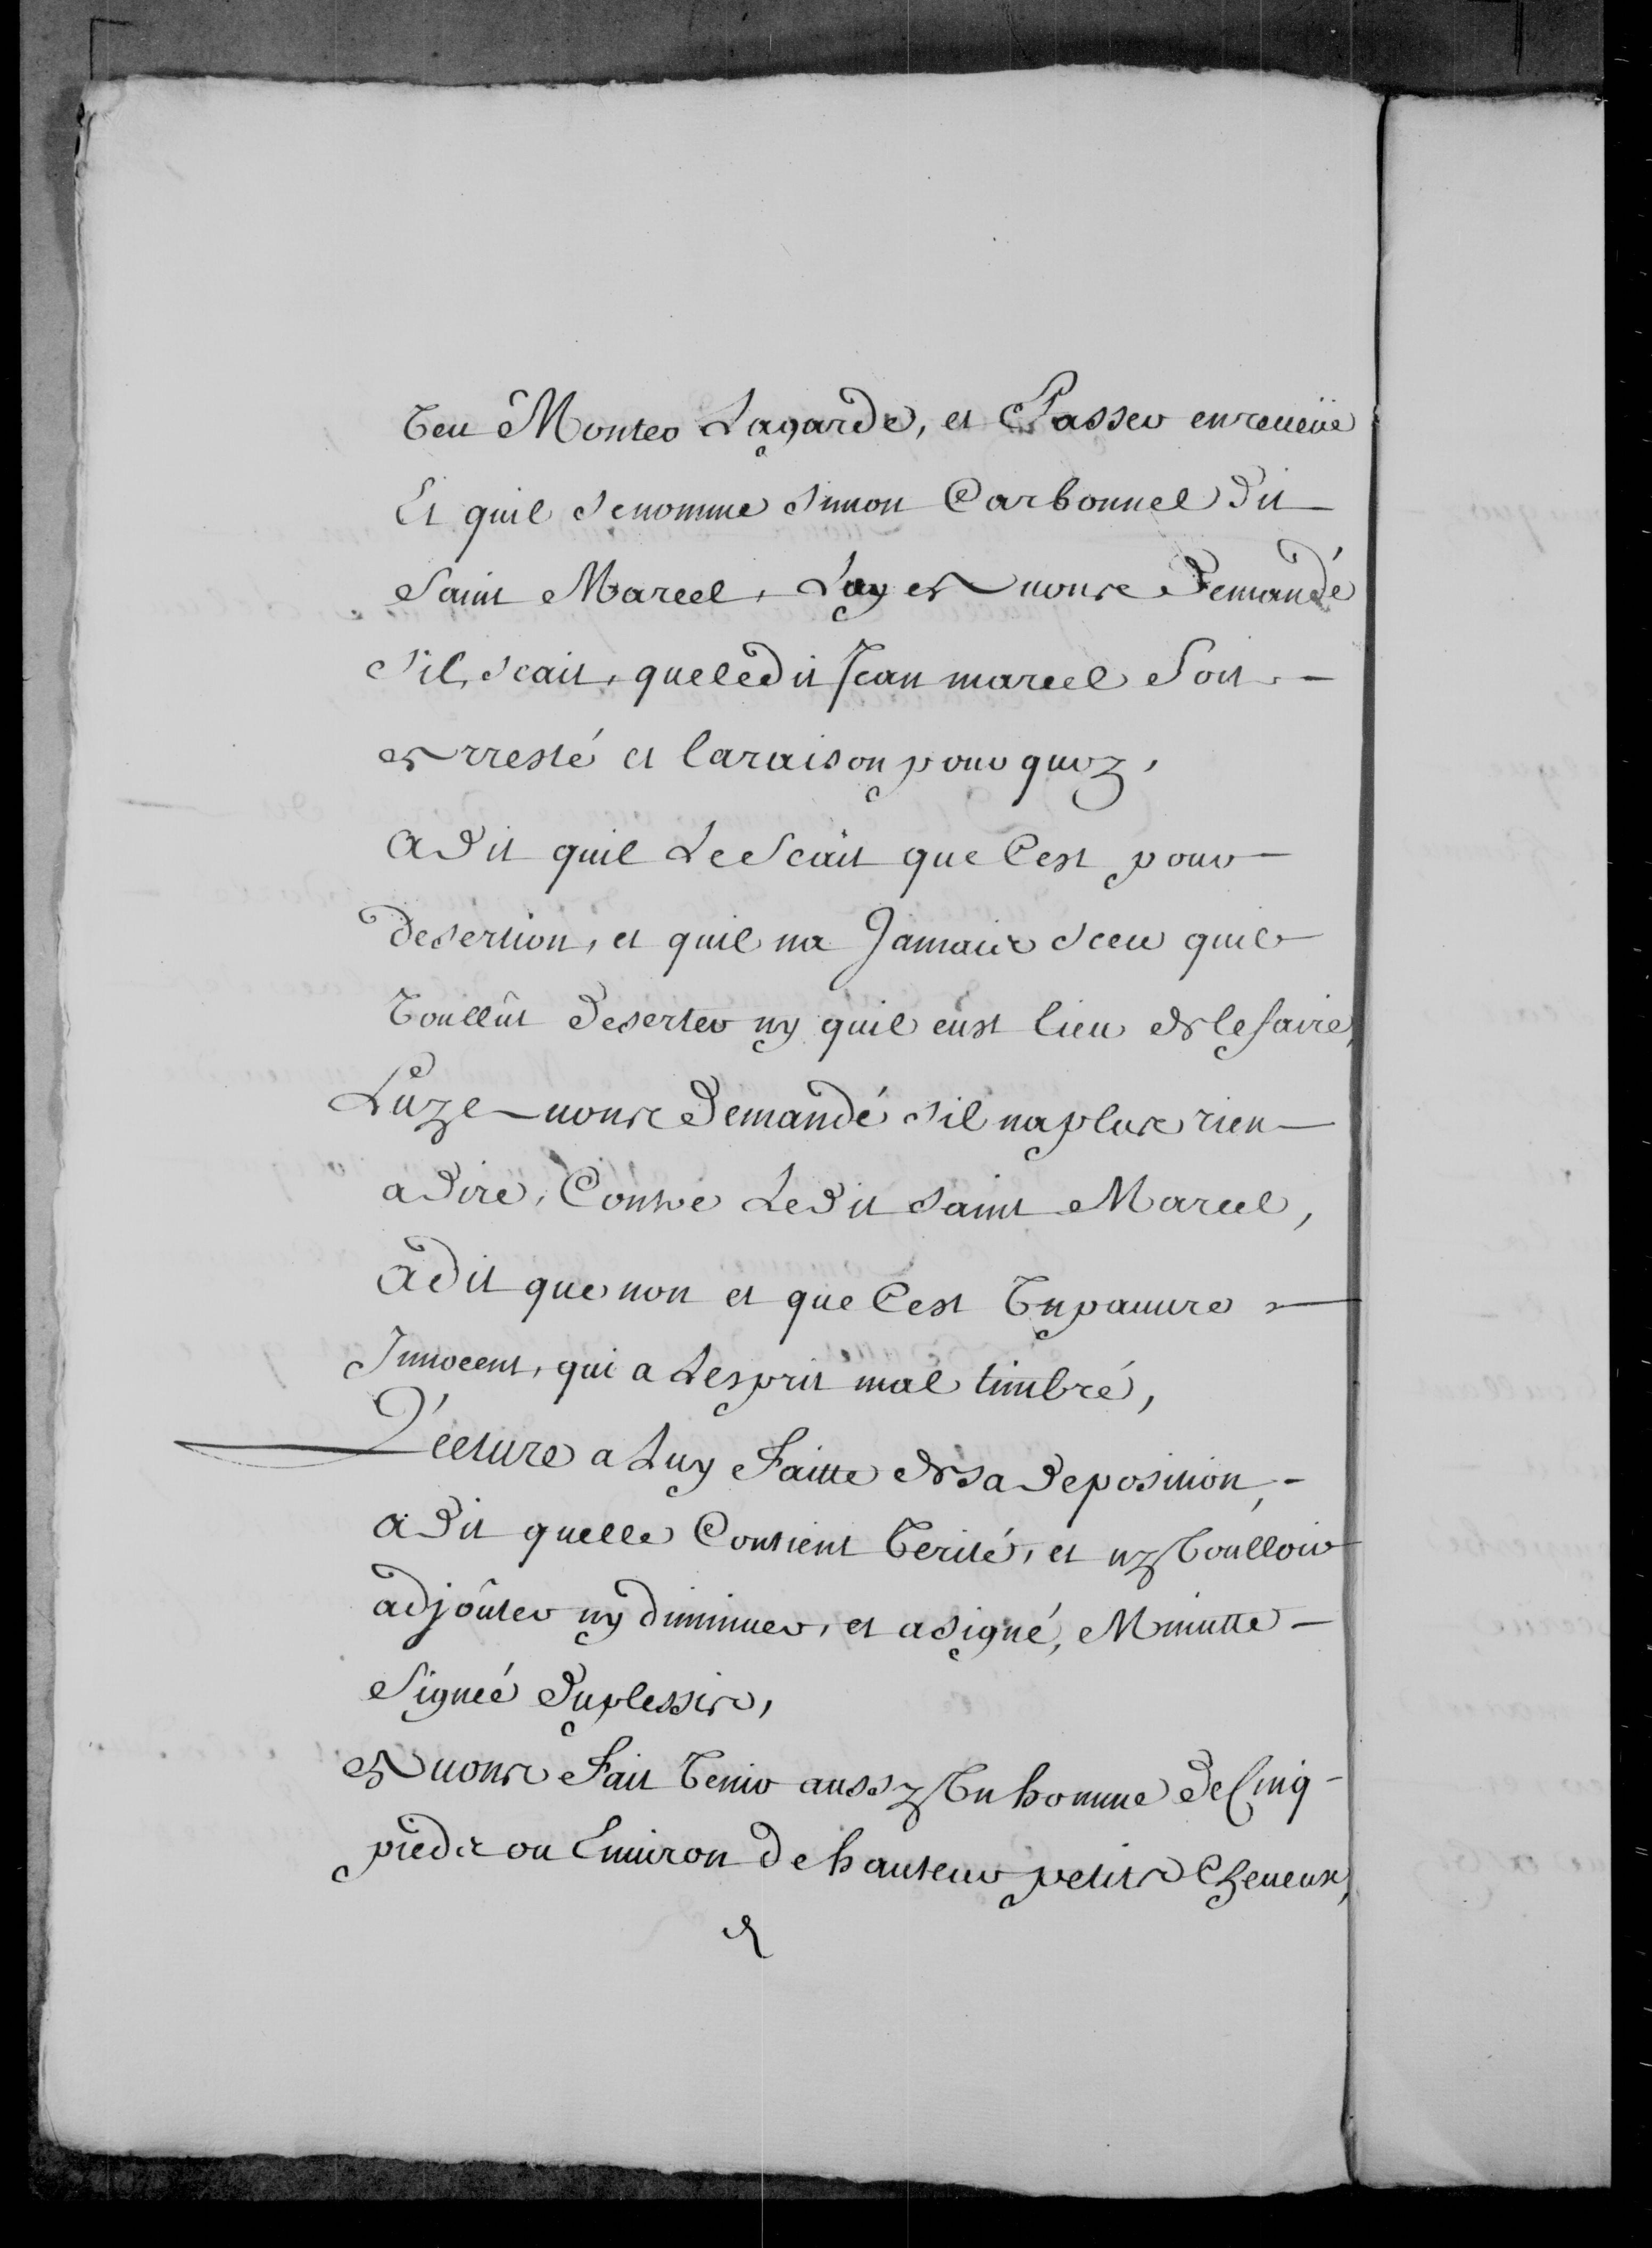 veu Monter Lagarde, et Passer en reueüe
Et quil se nomme Simon Carbonnel dit
Saint Marcel, Luy Auons demandé
s'il scait, que ledit Jean marcel soit
Arresté et la raison pour quoy,
a dit quil Le Scait que C'est pour
desertion, et quil na Jamais sceu quil
Voullût deserter ny quil eust lieu de le faire,
Luy Auons demandé s'il na plus rien
a dire, Contre Ledit saint Marcel,
a dit que non et que C'est Un pauure
Innocent, qui a Lesprit mal timbré,
Lecture a Luy Faitte de sa deposition,
a dit quelle Contient Verité, et ny Voulloir
adjoûter ny diminuer, et a signé, Minutte
Signée duplessis,
Auons Fait Venir aussy Un homme de Cinq
pieds ou Enuiron de hauteur petits Cheueux,